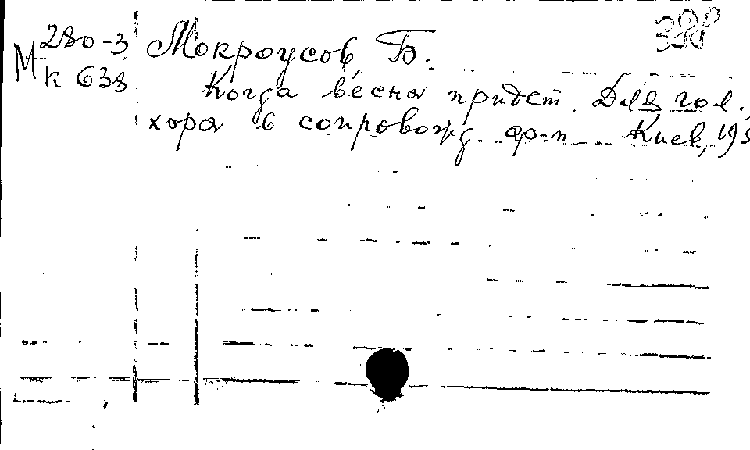 М 280-3 Мокроусов Б.
К 638 Когда весна придет. Для гол.,
хора в сопровожд. ф-п. Киев, 195